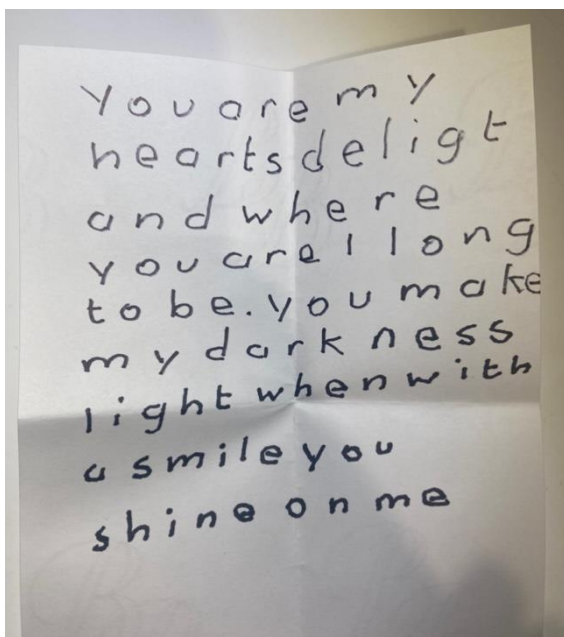 You are my
heartsdeligt
and where
you are I long
to be. you make
my darkness
light when with
a smile you
shine on me